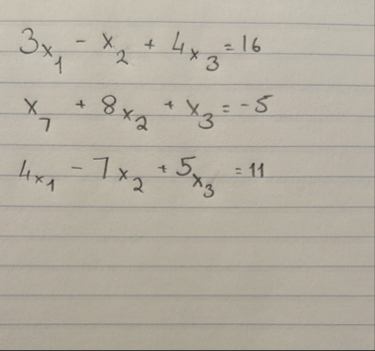 3x₁ - x₂ + 4x₃ = 16
x₇ + 8x₂ + x₃ = -5
4x₁ - 7x₂ + 5x₃ = 11